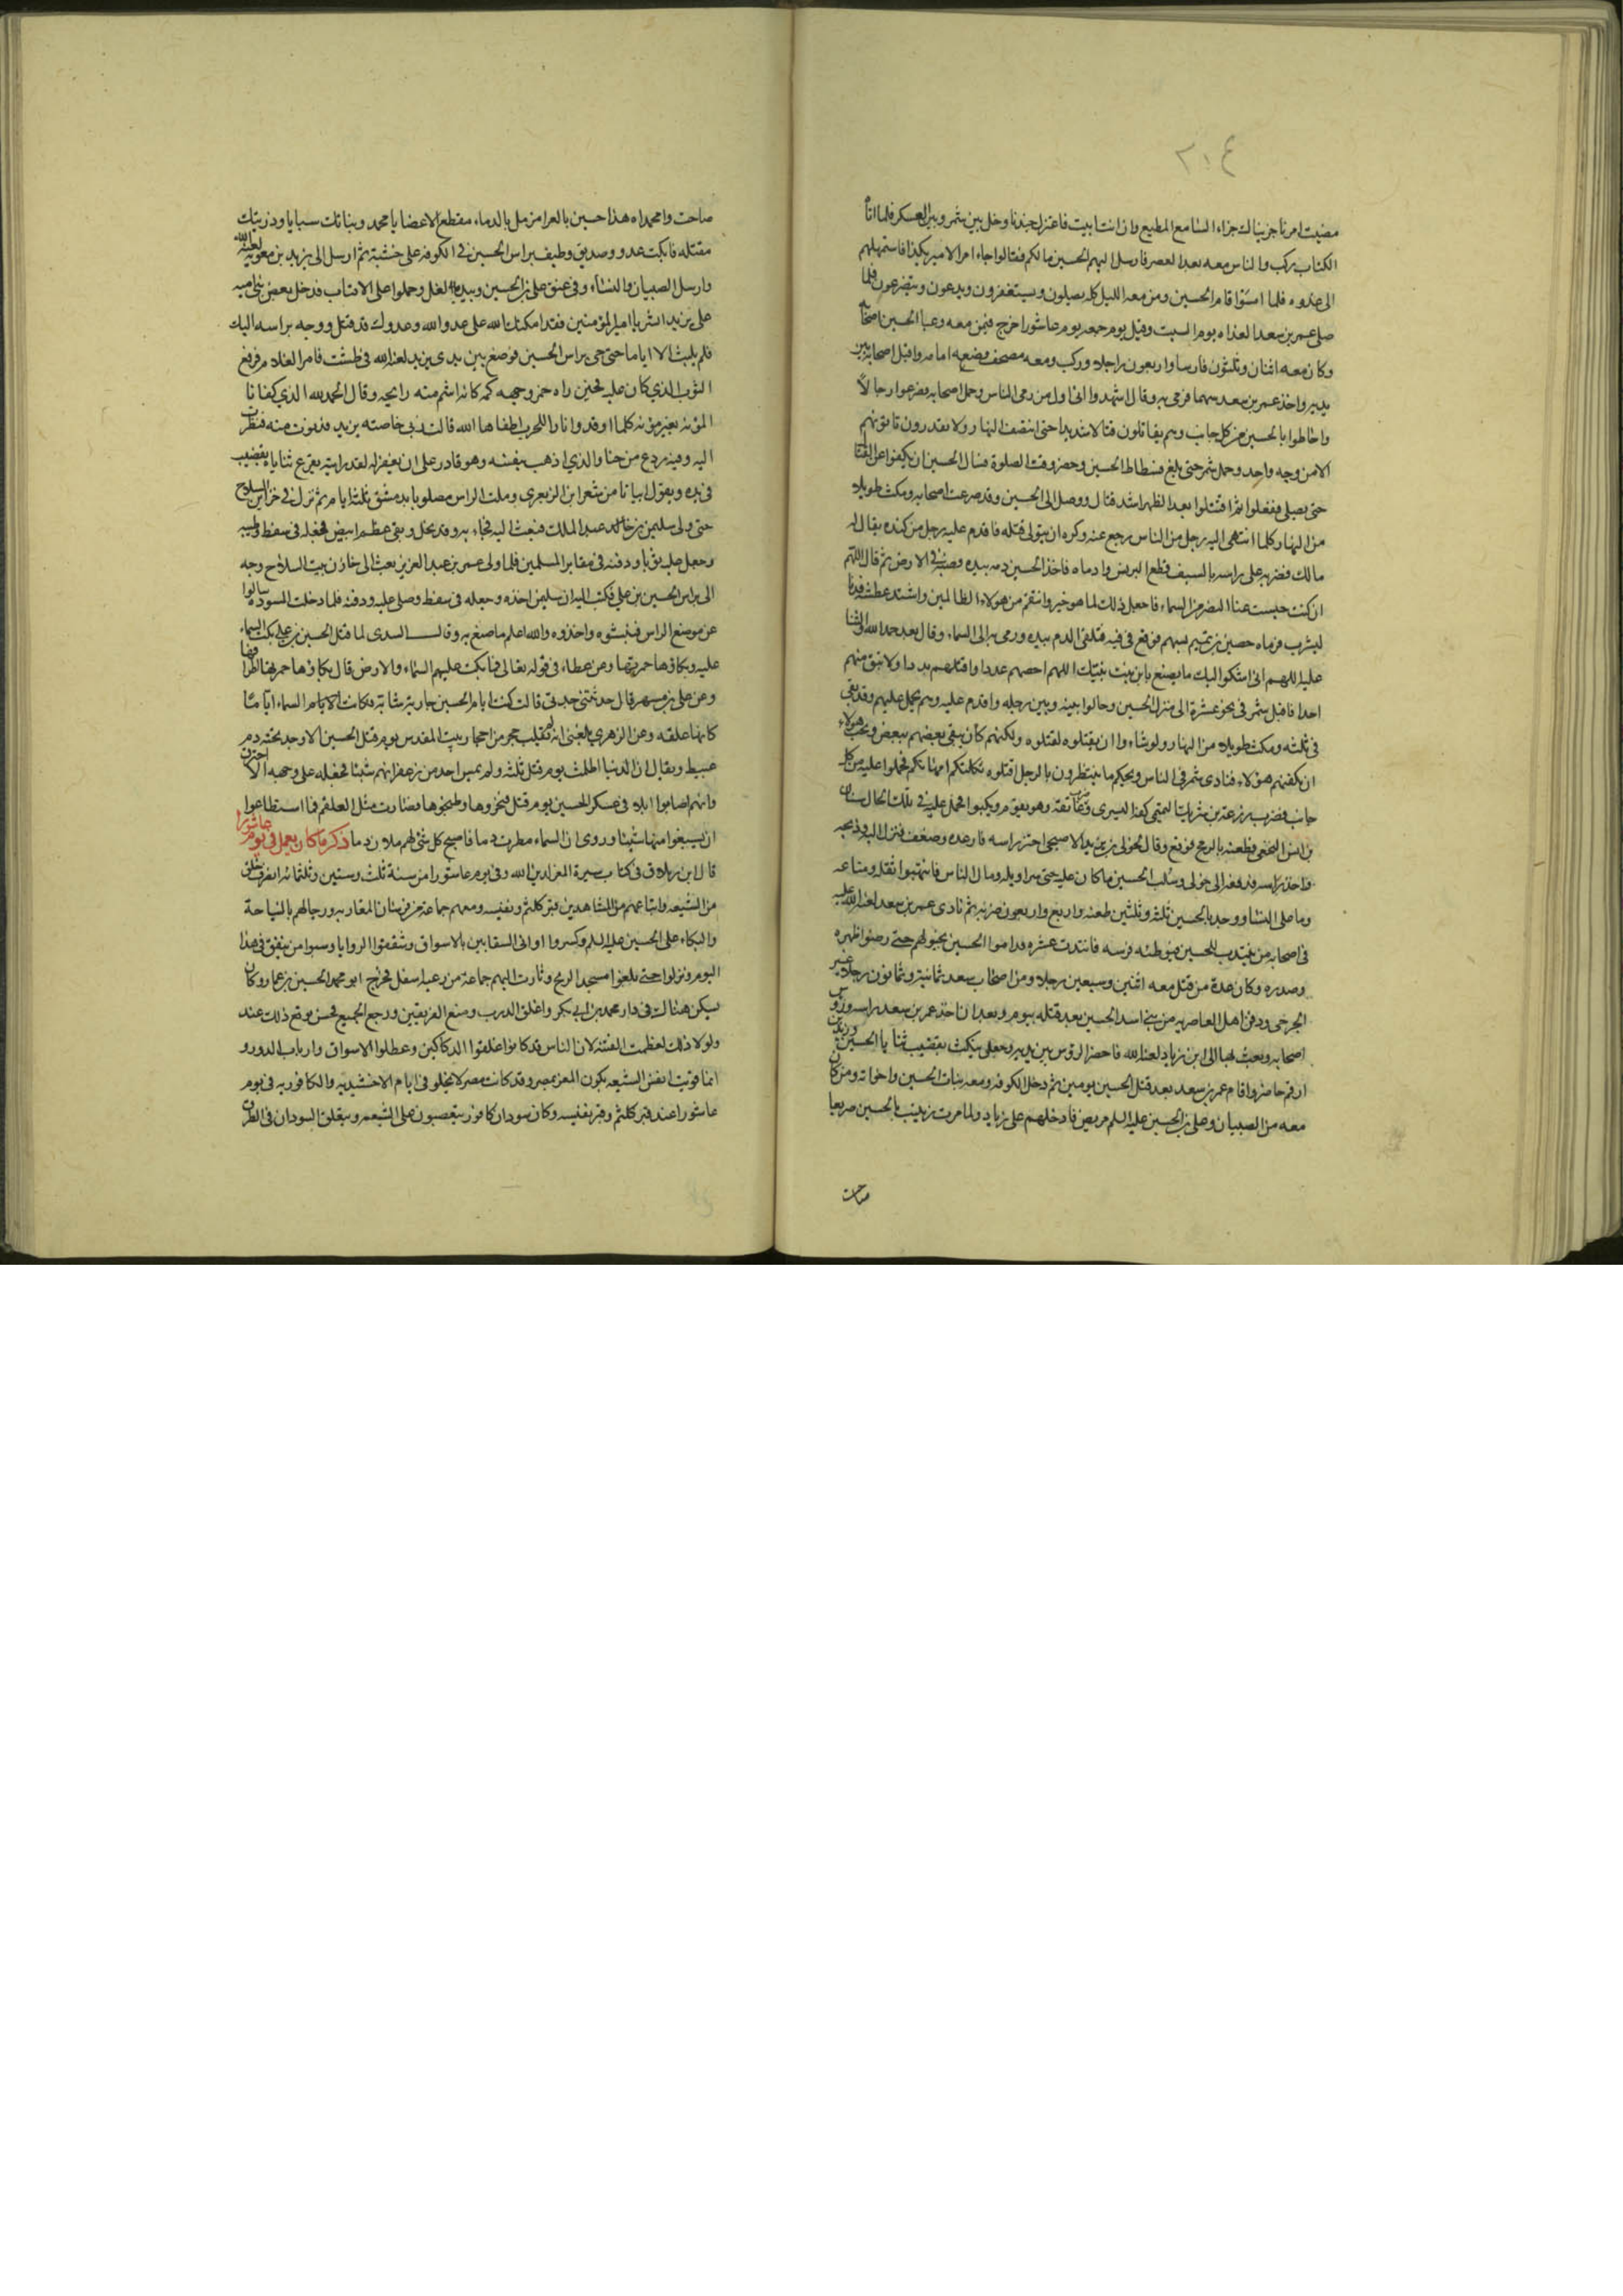 ٢٠٤
مضيت امرنا جزيناك جزاء السامع المطيع وان انت ابيت فاعتزل جندنا وخل بين شمر وبين العسكر فلما اتاه
الكتاب ركب والناس معه بعد العصر فارسل اليهم الحسين مالكم فقالوا جاء امر الامير بكذا فاستمهلهم
الى غدوه فلما امسوا قام الحسين ومن معه الليل كله يصلون ويستغفرون ويدعون ويتضرعون فلما
صلى عمر بن سعد الغداه يوم السبت وقيل يوم جمعه يوم عاشورا خرج فيمن معه وعبا الحسين اصحابه
وكان معه اثنان وثلثون فارسا واربعون راجلا وركب ومعه مصحف وضعه امامه واقتتل اصحابه بين
يديه واخذ عمر بن سعد سهما فرمى به وقال اشهدوا انى اول من رمى الناس وحمل اصحابه فصرعوا رجالا
واحاطوا بالحسين من كل جانب وهم يقاتلون قتالا شديدا حتى انتصف النهار ولا يقدرون ياتونهم
الا من وجه واحد وحمل شمر حتى بلغ فسطاط الحسين وحضر وقت الصلوة فسال الحسين ان يكفوا عن القتال
حتى يصلى ففعلوا ثم اقتتلوا بعد الظهر اشد قتال ووصل الى الحسين وقد صرعت اصحابه ومكث طويلا
من النهار وكلما انتهى اليه رجل من الناس رجع عنه وكره ان يتولى قتله فاقدم عليه رجل من كنده يقال له
مالك فضربه على راسه بالسيف قطع البرنس وادماه فاخذ الحسين دمه بيده وصبه فى الارض ثم قال اللهم
ان كنت حبست عنا النصر من السماء فاجعل ذلك لما هو خير وانتقم من هولاء الظالمين واشتد عطشه فدنا
ليشرب فرماه حصين بن تميم بسهم فوقع فى فيه فتلقى الدم بيده ورمى به الى السماء وقال بعد حمد الله والثنا
عليه اللهم انى اشكوا اليك ما يصنع بابن بنت نبيك اللهم احصهم عددا واقتلهم بددا ولا تبق منهم
احدا فاقبل شمر فى نحو عشرة الى منزل الحسين وحالوا بينه وبين رحله واقدم عليه وهم يحمل عليهم وقد بقى
فى ثلثه ومكث طويلا من النهار ولو شاءوا ان يقتلوه لقتلوه ولكنهم كان يتقى بعضهم ببعض ويحب هولاء
ان يكفيهم هولاء فنادى شمر فى الناس ويحكم ما تنتظرون بالرجل اقتلوه ثكلتكم امهاتكم فحملوا عليه من كل
جانب فضرب زرعة بن شريك التميمى كفه اليسرى وضرب عاتقه وهو يقوم ويكبوا فحمل عليه فى تلك الحال سنان
بن انس النخعى فطعنه بالرمح فوقع وقال لخولى بن يزيد الاصبحى احتز راسه فارعد وضعف فنزل اليه وذبحه
واخذ راسه فدفعه الى خولى وسلب الحسين ما كان عليه حتى سراويله ومال الناس فانتهبوا ثقله ومتاعه
وما على النسا ووجد بالحسين ثلثه وثلثين طعنه واربع واربعون ضربه ثم نادى عمر بن سعد لعنه الله عليه
فى اصحابه من ينتدب للحسين فيوطئه فرسه فانتدب عشره فداسوا الحسين بخيولهم حتى رضوا ظهره
وصدره وكان عدة من قتل معه اثنين وسبعين رجلا ومن اصحاب سعد ثمانية وثمانون رجلا غير
الجرحى ودفن اهل الغاضريه من بنى اسد الحسين بعد قتله بيوم وبعد ان اخذ عمر بن سعد راسه وروس
اصحابه وبعث بها الى ابن زياد لعنه الله فاحضر الروس بين يديه وجعل ينكث بقضيب ثنايا الحسين وزيد بن
ارقم حاضر واقام عمر بن سعد بعد قتل الحسين يومين ثم دخل الكوفه ومعه بنات الحسين واخواته ومن كان
معه من الصبيان وعلى بن الحسين عليه السلم مريض فادخلهم على زياد ولما مرت زينب بالحسين صريعا
صاحت
صاحت وامحمداه هذا حسين بالعرا مزمل بالدماء مقطع الاعضا يا محمد وبناتك سبايا وذريتك
مقتله فابكت عدو وصديق وطيف براس الحسين فى الكوفه على خشبة ثم ارسل الى يزيد بن معويه لعنه الله
وارسل الصبيان والنساء وفى عنق على بن الحسين ويديه الغل وحملوا على الاقتاب فدخل بعض بنى اميه
على يزيد ابشر يا امير المومنين فقد امكنك الله على عدو الله وعدوك قد قتل ووجه براسه اليك
فلم يلبث الا اياما حتى جى براس الحسين فوضع بين يدى يزيد لعنه الله فى طشت فامر الغلام فرفع
الثوب الذى كان عليه فحين راه خمر وجهه بكمه كانه اشتم منه رايحه وقال الحمد لله الذى كفانا
المؤنه بغير مؤنه كلما اوقدوا نارا للحرب اطفاها الله قالت دبى خاصته يزيد فدنوت منه فنظرت
اليه وفيه ردع من حنا والذى اذهب بنفسه وهو قادر على ان يغفر له لقد رايته يقرع ثناياه بقضيب
فى يده ويقول ابياتا من شعر ابن الزبعرى ومكث الراس مصلوبا بدمشق ثلثه ايام ثم نزل فى خزاين السلاح
حتى ولى سليمن بن عبد الملك فبعث اليه فجاء به وقد نحل وبقى عظم ابيض فجعله فى سفط وطيبه
وجعل عليه ثوبا ودفنه فى مقابر المسلمين فلما ولى عمر بن عبد العزيز بعث الى خازن بيت السلاح وجه
الى براس الحسين بن على فكتب اليه ان سليمن اخذه وجعله فى سفط وصلى عليه ودفنه فلما دخلت المسوده سالوا
عن موضع الراس فنبشوه واخذوه والله اعلم ما صنع به وقال السدى لما قتل الحسين بن على بكت السماء
عليه وبكاؤها حمرتها وعن عطاء فى قوله تعالى فما بكت عليهم السماء والارض قال بكاؤها حمرة اطرافها
وعن على بن مسهر قال حدثتنى جدتى قالت كنت ايام الحسين جارية شابة فكانت السماء اياما
كانها علقه وعن الزهرى بلغنى انه لم يقلب حجر من احجار بيت المقدس يوم قتل الحسين الا وجد تحته دم
عبيط ويقال ان الدنيا اظلمت يوم قتل ثلثه ولم يمس احد من زعفرانهم شيئا فجعله على وجهه الا احترق
وانهم اصابوا ابلا فى عسكر الحسين يوم قتل فنحروها وطبخوها فصارت مثل العلقم فما استطاعوا
ان يسيغوا منها شيئا وروى ان السماء مطرت دما فاصبح كل شى لهم ملان دما ذكر ما كان يعمل فى يوم عاشورا
قال ابن زولاق فى كتاب سيرة المعز لدين الله وفى يوم عاشورا من سنة ثلث وستين وثلثمائه انصرف خلق
من الشيعه واتباعهم من المشاهدين قبر كلثم ونفيسه ومعهم جماعة من فرسان المغاربه ورجالهم بالنياحة
والبكاء على الحسين عليه السلم وكسروا اوانى السقايين بالاسواق وشققوا الروايا وسبوا من ينفق فى هذا
اليوم ونزلوا حتى بلغوا مسجد الريح وثارت اليهم جماعة من رعية اسفل فخرج ابو محمد الحسين بن عمار وكان
يسكن هنالك فى دار محمد بن ابى بكر واغلق الدرب ومنع الفريقين ورجع الجميع فحسن موقع ذلك عند
ولولا ذلك لعظمت الفتنه لان الناس قد كانوا غلقوا الدكاكين وعطلوا الاسواق وارباب الدور و
انما قويت انفس الشيعه بكون المعز بمصر وقد كانت مصر لا تخلو فى ايام الاخشيديه والكافوريه فى يوم
عاشورا عند قبر كلثم وقبر نفيسه وكان سودان كافور يتعصبون على الشيعه ويتعلق السودان فى الطرق